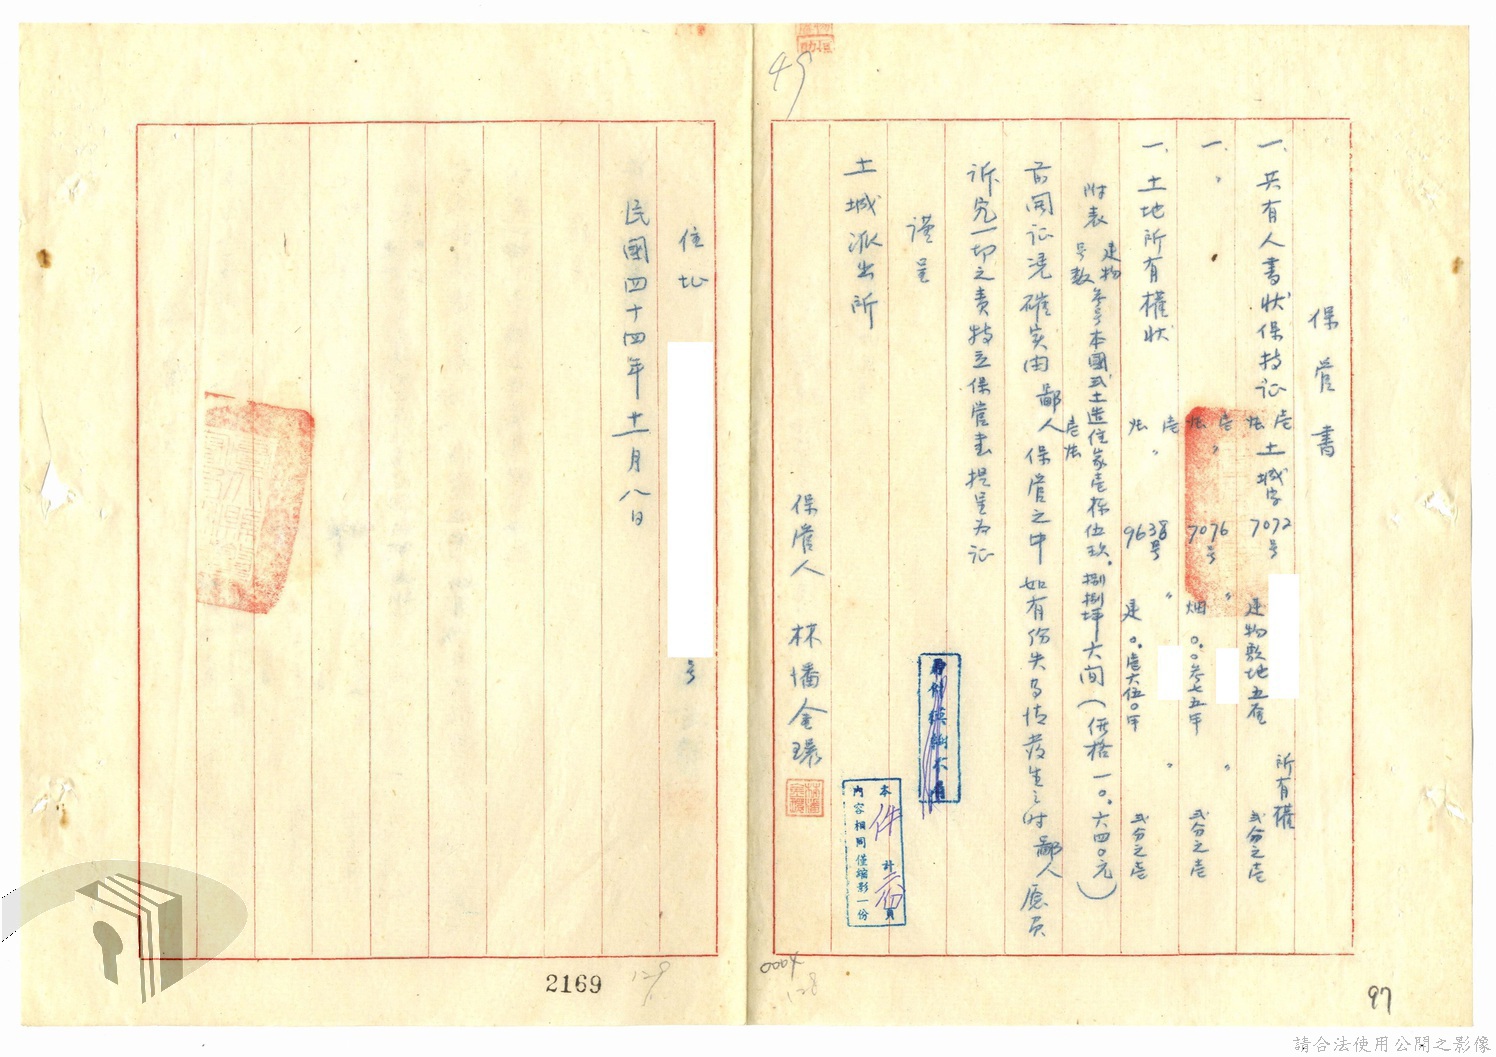 保管書
一、共有人書狀保持証壱張 土城字7072号 建物敷地五厘 所有權弍分之壱
一、〃 壱張 〃 7076号 〃 畑 0.0參七五甲 〃 弍分之壱
一、土地所有權狀 壱張 〃 9638号 〃 建 0.壱六伍0甲 〃 弍分之壱
附表 建物号数 參号本國式土造住家壱棟伍玖.捌捌坪六間(価格一0.六四0元)壱張
前開証 確実由鄙人保管之中如有份失 情 發生之時鄙人愿負
訴究一切之責特立保管書提呈为証
謹呈
土城派出所
保管人 林潘金環
本件計六頁
內容相同僅縮影一份
49
0004
128
97
住址
号
民國四十四年十一月八日
2169
129
請合法使用公開之影像